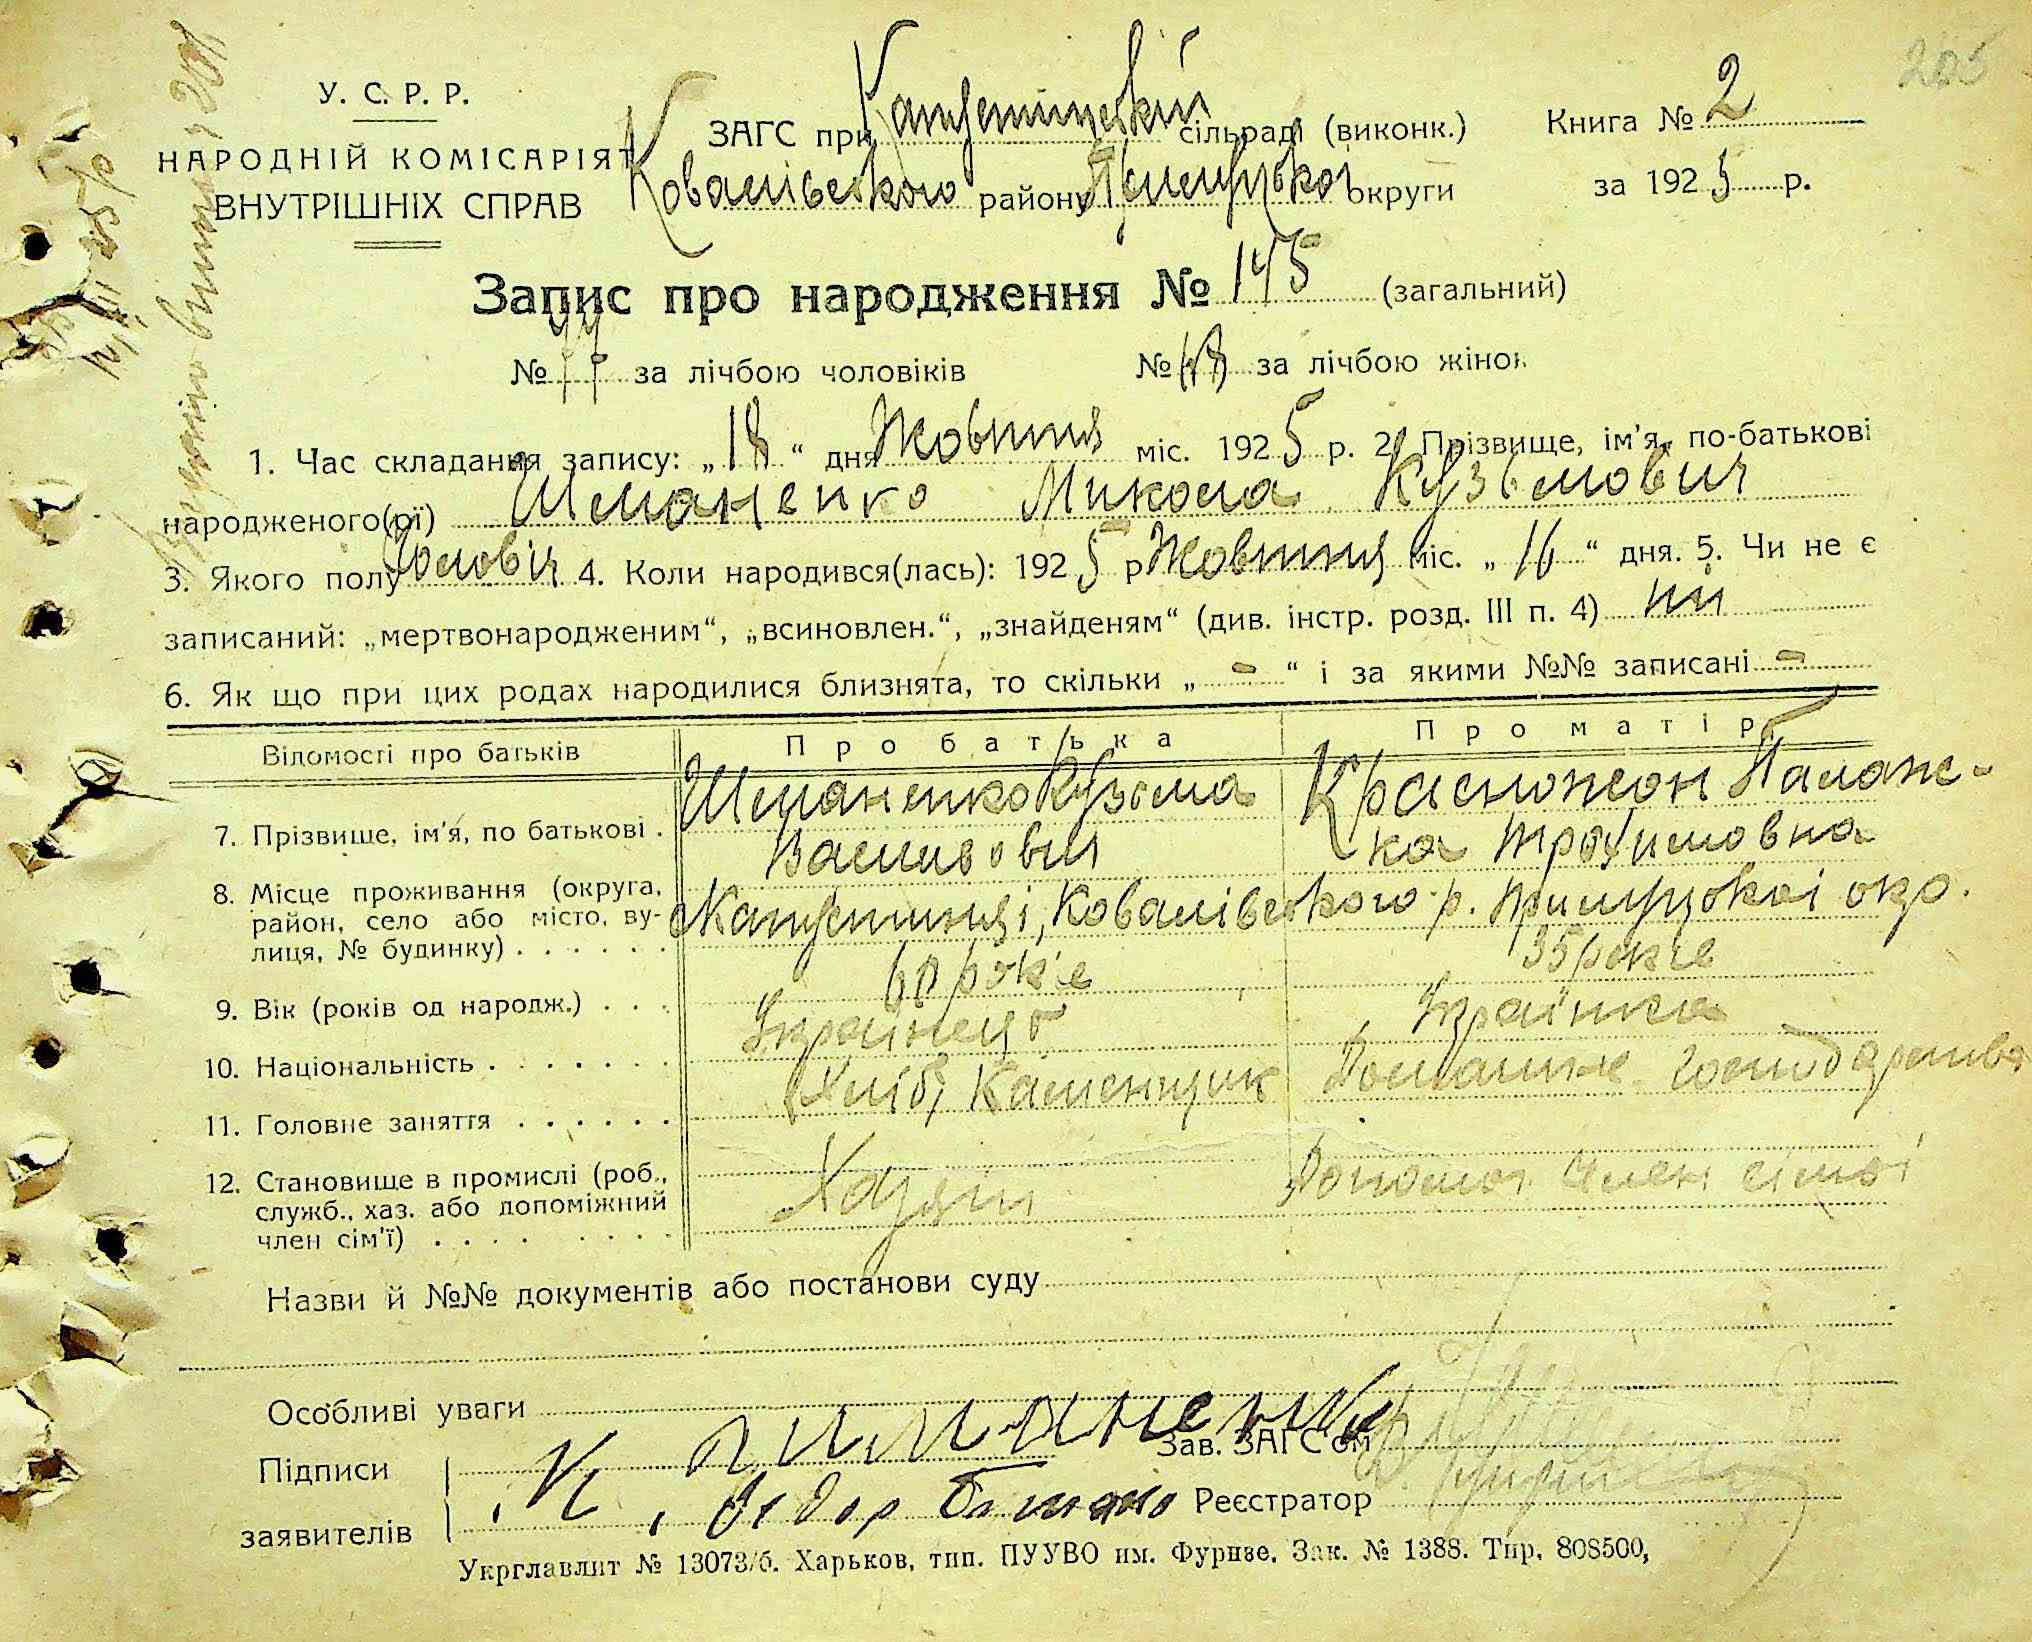 205
У. С. Р. Р.
НАРОДНІЙ КОМІСАРІЯТ
ВНУТРІШНІХ СПРАВ
ЗАГС при Капустинській сільраді (виконк.)
Ковалівского району Прилуцької округи
Книга № 2
за 1925 р.
Запис про народження № 145 (загальний)
№ 77 за лічбою чоловіків № 68 за лічбою жінок
1. Час складання запису: „18“ дня Жовтня міс. 1925 р. 2. Прізвище, ім'я, по-батькові
народженого(ої) Шманенко Микола Кузьмович
3. Якого полу Чоловіч 4. Коли народився(лась): 1925 р Жовтня міс. „16“ дня. 5. Чи не є
записаний: „мертвонародженим“, „всиновлен.“, „знайденям“ (див. інстр. розд. III п. 4) ні
6. Як що при цих родах народилися близнята, то скільки „ - “ і за якими №№ записані -
Відомості про батьків Про батька Про матір
7. Прізвище, ім'я, по батькові . Шманенко Кузьма Красножон Палаж-
Васильович ка Трохимовна
8. Місце проживання (округа, район, село або місто, вулиця, № будинку) . . . . . . Капустинці, Ковалівского р. Прилуцької окр.
9. Вік (років од народж.) . . . 60 років 35 років
10. Національність . . . . . . . Українець Українка
11. Головне заняття . . . . . . Хліб, Каменщик Домашне господарство
12. Становище в промислі (роб., служб., хаз. або допоміжний член сім'ї) . . . . . . . . Хазяїн Допомог. член сімьі
Назви й №№ документів або постанови суду
Особливі уваги
Підписи
заявителів
Зав. ЗАГС'ом
Реєстратор
Укрглавлит № 13073/б. Харьков, тип. ПУУВО им. Фурнзе. Зак. № 1388. Тир. 808500,